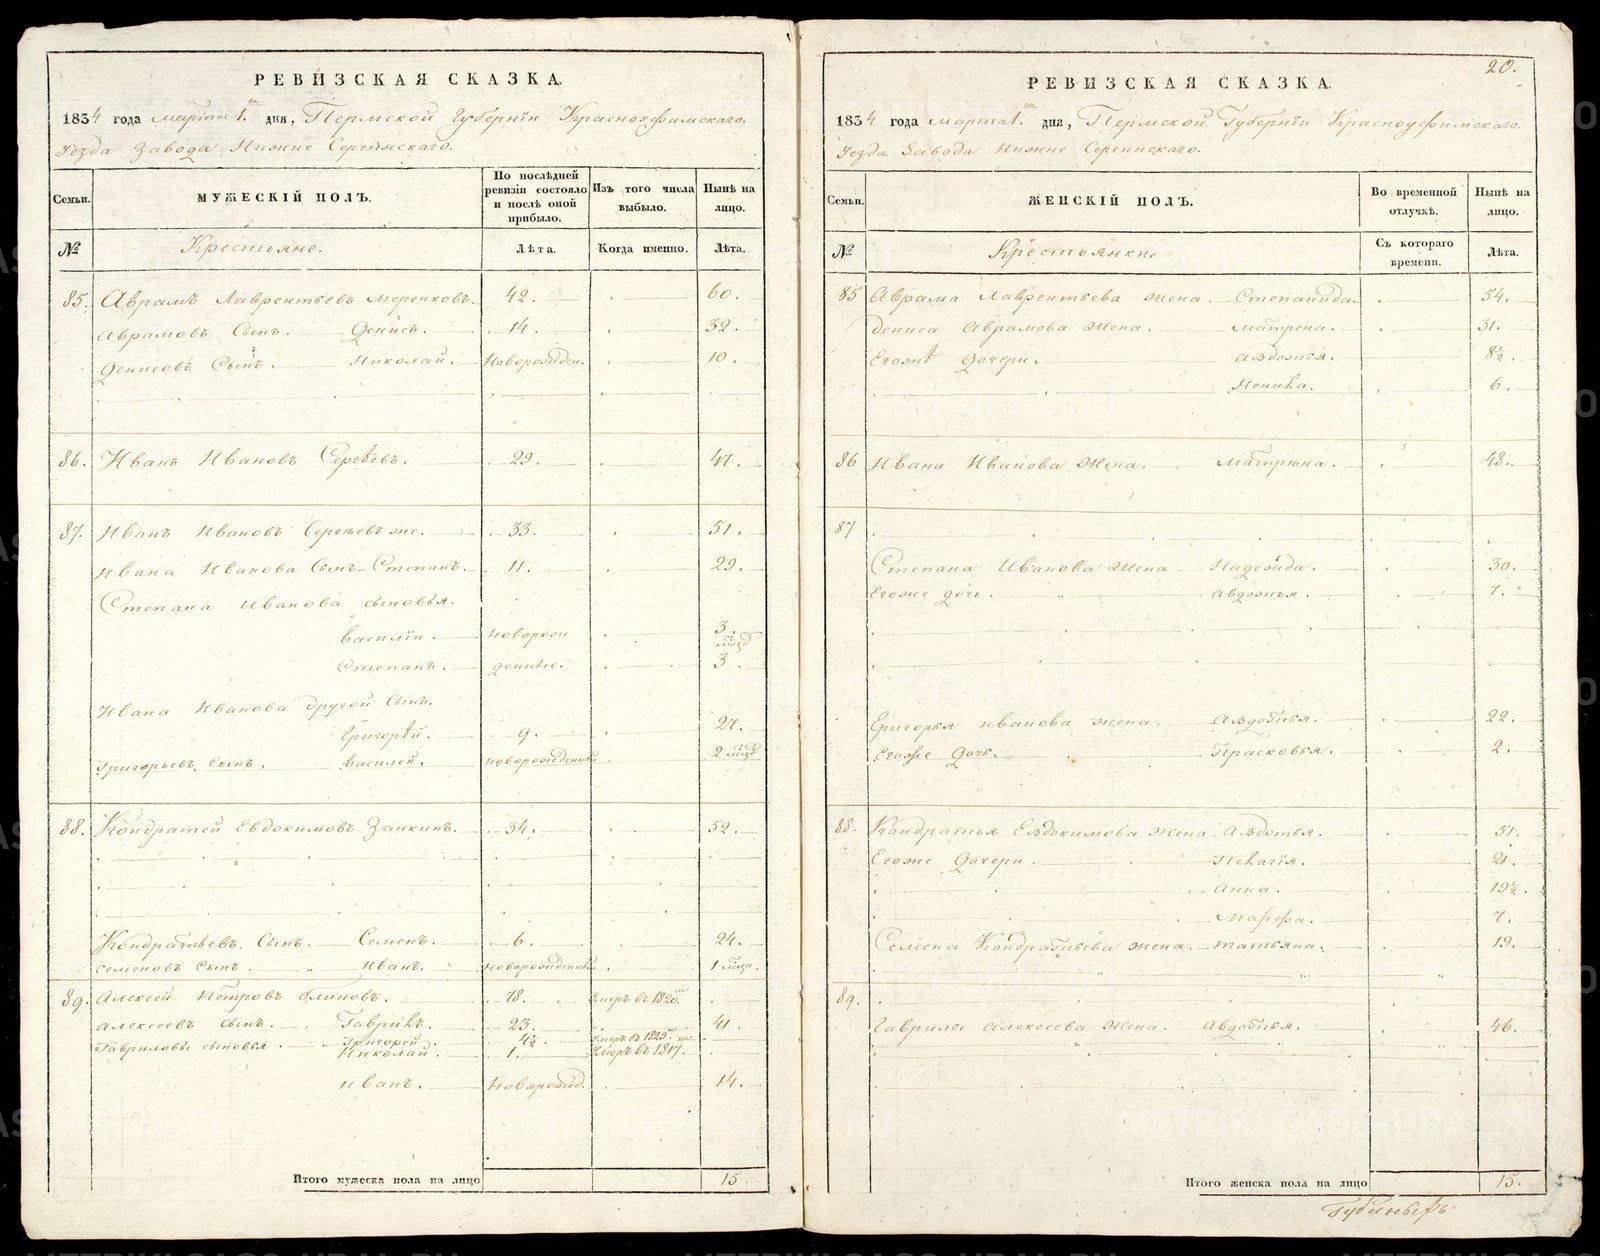 РЕВИЗСКАЯ СКАЗКА.
1834 года марта 1. дня, Пермской Губернiи Красноуфимскаго.
Уезда Завода Нижне Сергинскаго.
Семьи.
МУЖЕСКIЙ ПОЛЪ.
По послѣдней ревизiи состояло и послѣ оной прибыло.
Изъ того числа выбыло.
Нынѣ на лицо.
№ Крестьяне. Лѣта. Когда именно. Лѣта.
85. Аврамъ Лаврентьевъ Меренковъ. 42. 60.
Аврамовъ Сынъ. Денисъ. 14. 32.
Денисовъ Сынъ. Николай. Новорожден. 10.
86. Иванъ Ивановъ Сергѣевъ. 29. 47.
87. Иванъ Ивановъ Сергѣевъ же. 33. 51.
Ивана Иванова Сынъ Степанъ. 11. 29.
Степана Иванова сыновья.
Василiи. новорож 3.
Степанъ. денные. 3.
Ивана Иванова другой Сынъ.
Григорѣй. 9. 27.
Григорьевъ Сынъ. Василей. новорожденный 2
88. Кондратей Евдокимовъ Заикинъ. 34. 52.
Кондратьевъ. Сынъ. Семенъ. 6. 24.
Семеновъ Сынъ. Иванъ. Новорожденный 1
89. Алексей Петровъ Блиновъ. 78. Умеръ въ 1820.
Алексеевъ сынъ. Гаврилъ. 23. 41.
Гавриловы сыновья. Григорей. 4½ Умеръ въ 1829.
Николай. 1. Умеръ въ 1817.
Иванъ. Новорожд. 14.
Итого мужеска пола на лицо 15.
20.
РЕВИЗСКАЯ СКАЗКА.
1834 года марта 1. дня, Пермской Губернiи Красноуфимскаго.
Уезда Завода Нижне Сергинскаго.
Семьи.
ЖЕНСКIЙ ПОЛЪ.
Во временной отлучкѣ.
Нынѣ на лицо.
№ Крестьянки Съ котораго времени. Лѣта.
85 Аврама Лаврентьева жена. Степанида. 54.
Дениса Аврамова жена. Матрена. 31.
Егожѣ дочери. Авдотья. 8½.
6.
86 Ивана Иванова жена. Матрѣна. 48.
87
Степана Иванова жена Надежда. 30.
Егоже дочь. Авдотья. 7.
Григорья Иванова жена. Авдотья. 22.
Егоже дочь. Прасковья. 2.
88. Кондратья Евдокимова жена Авдотья. 51.
Егоже дочери. Пелагiя. 21.
Анна. 19½.
Марфа. 7.
Семена Кондратьева жена. Татьяна. 19.
89.
Гаврилы Алексеева жена. Авдотья. 46.
Итого женска пола на лицо 15.